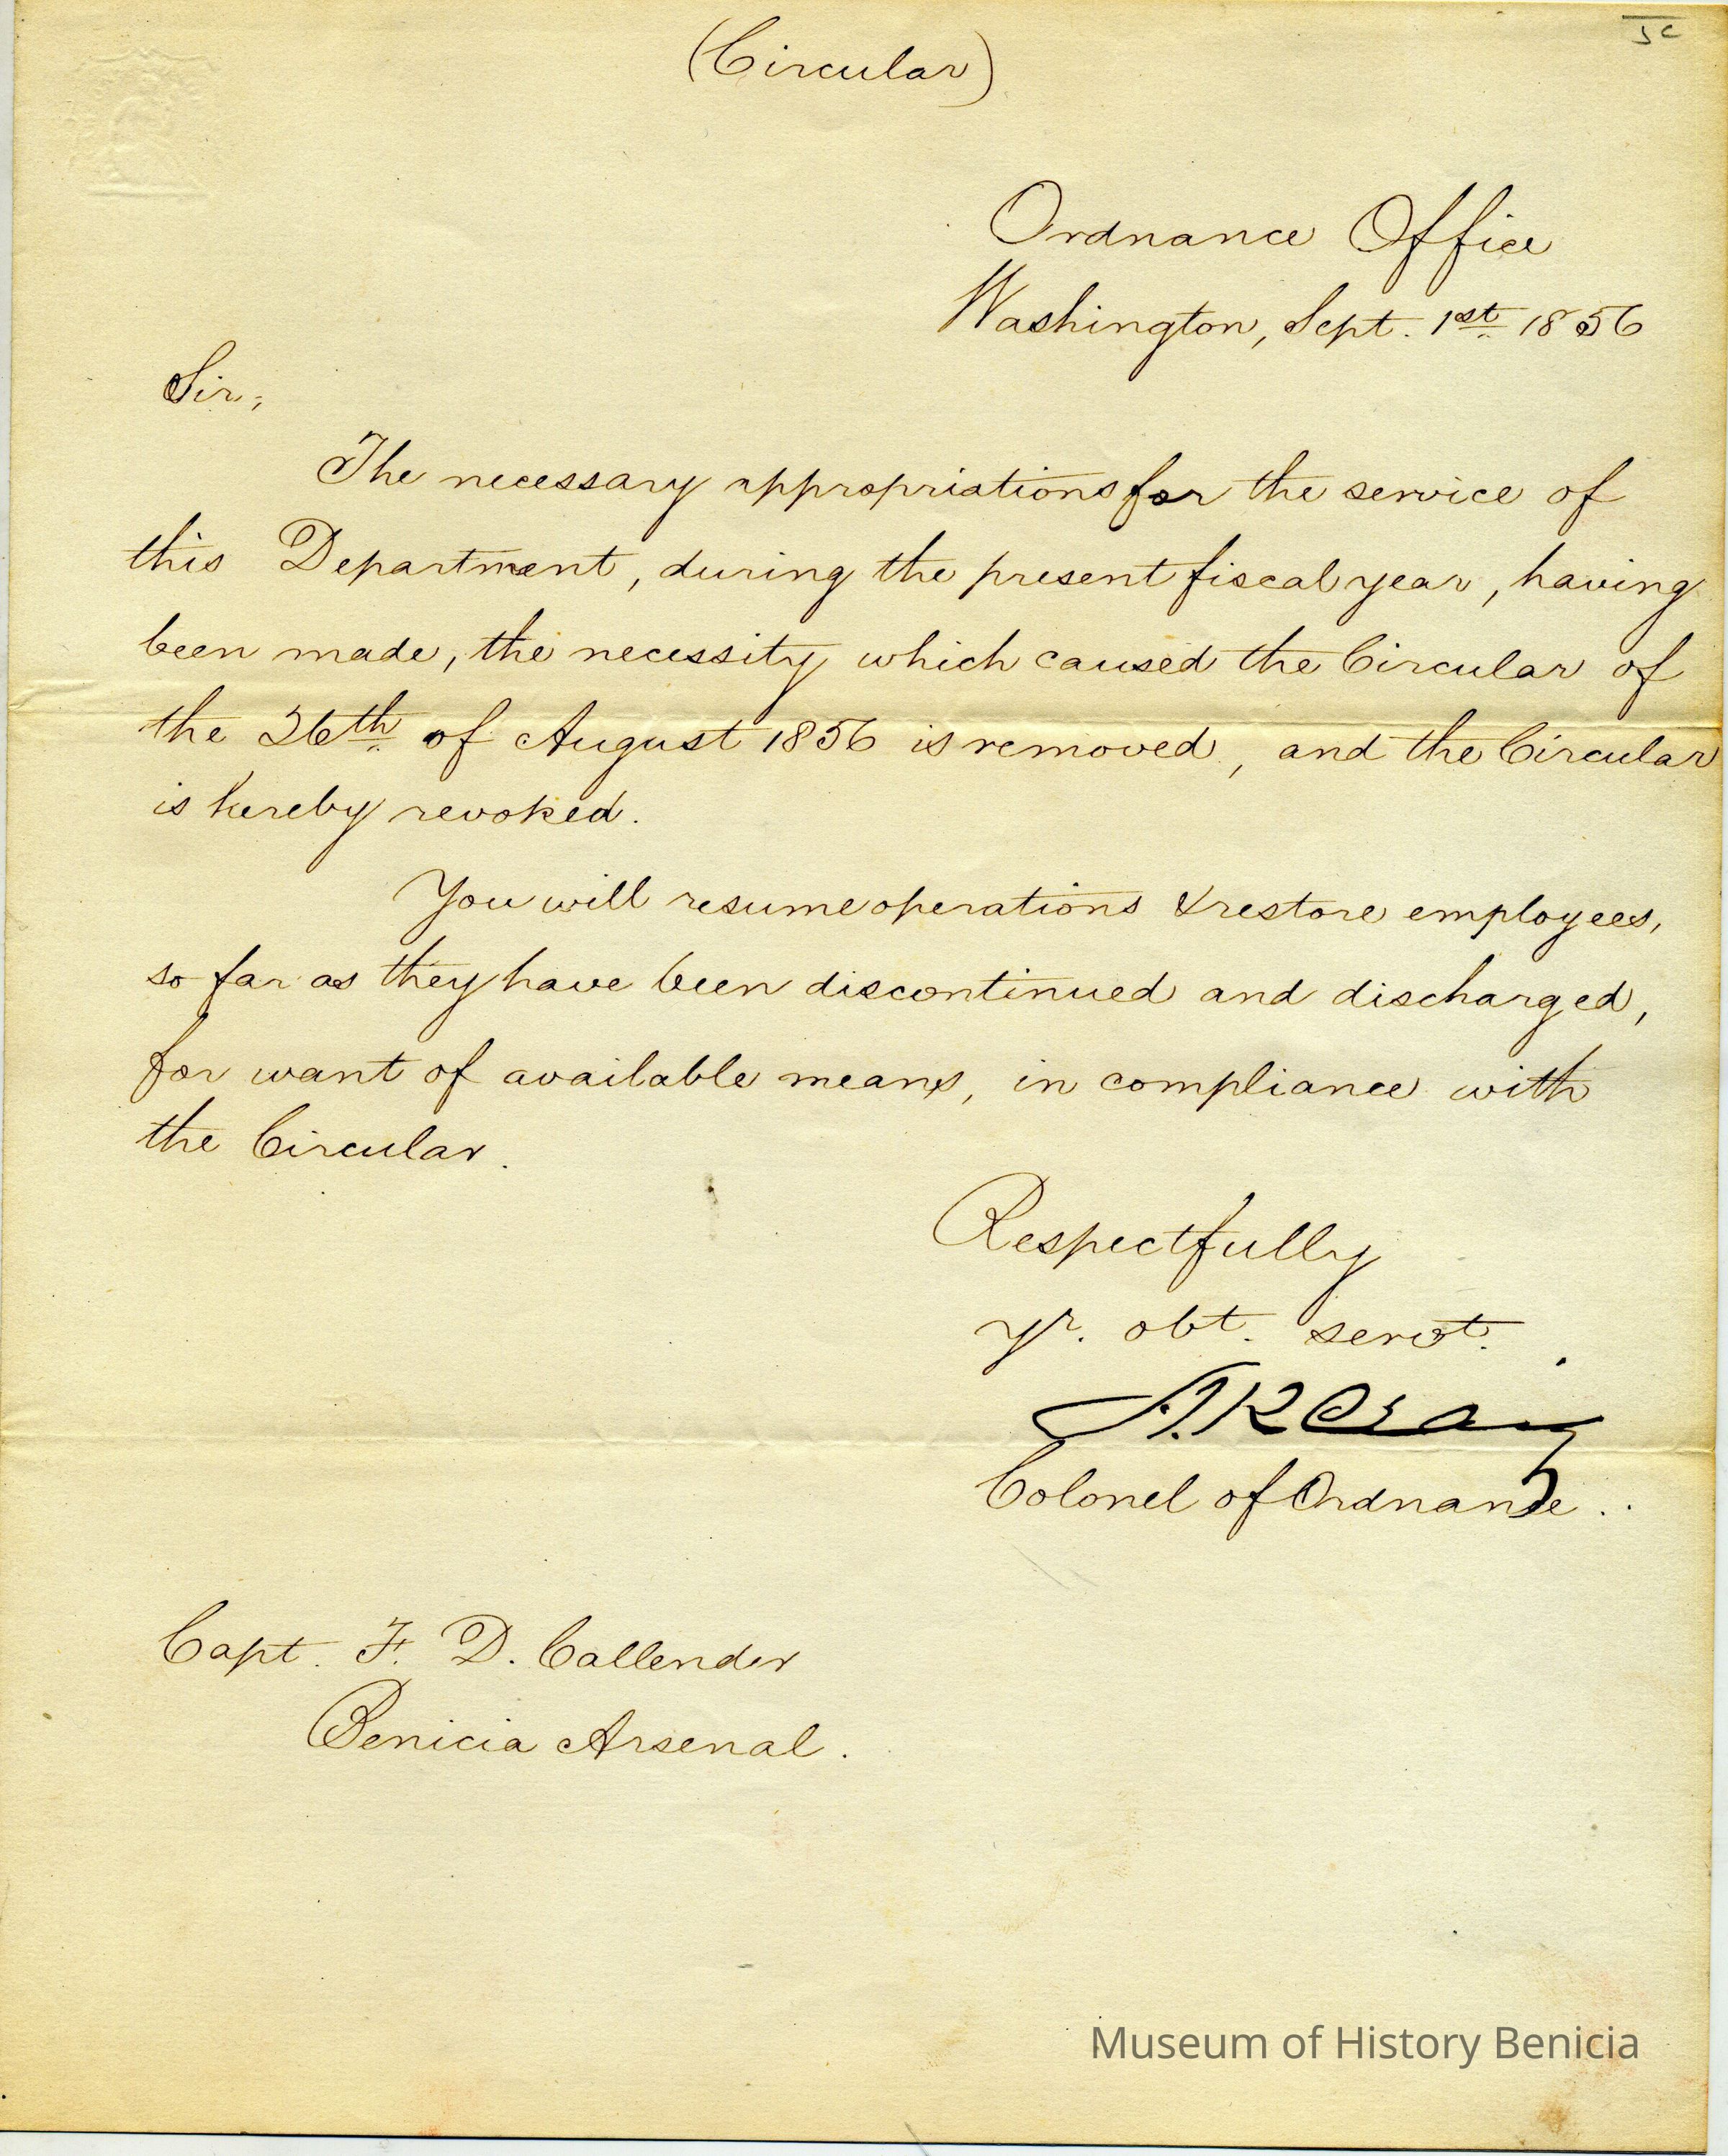 (Circular)
Ordnance Office
Washington, Sept. 1st 1856
Sir,
The necessary appropriations for the service of
this Department, during the present fiscal year, having
been made, the necessity which caused the Circular of
the 26th of August 1856 is removed, and the Circular
is hereby revoked.
You will resume operations & restore employees,
so far as they have been discontinued and discharged,
for want of available means, in compliance with
the Circular.
Respectfully
yr. obt. servt.
Colonel of Ordnance.
Capt. F. D. Callender
Benicia Arsenal.
Museum of History Benicia